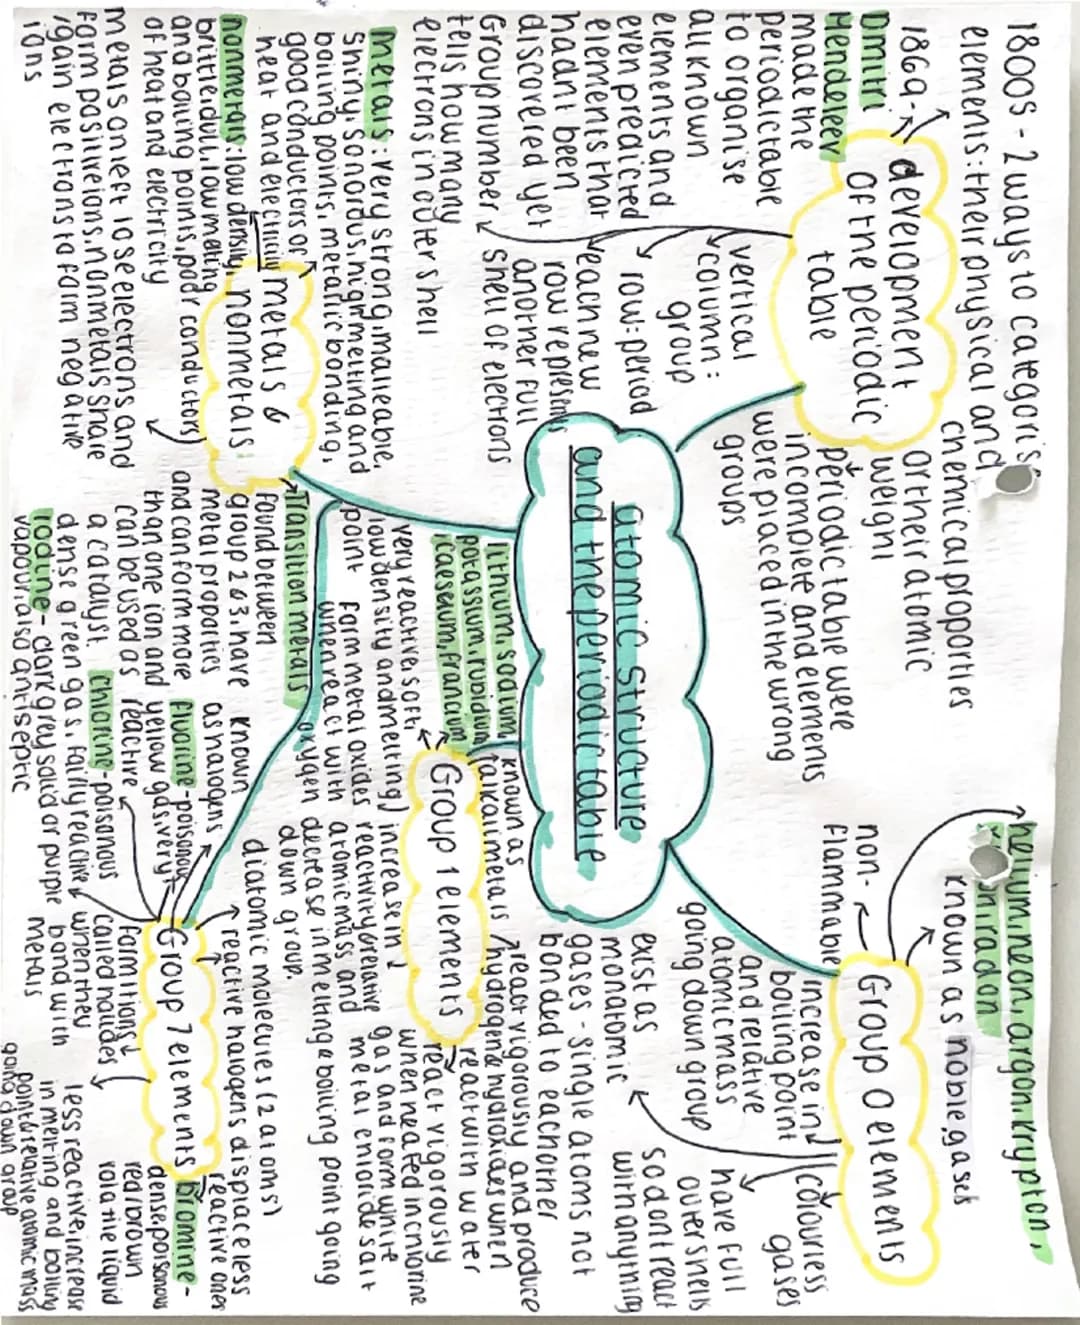 1800s - 2 ways to categorise
elements: their physical and
chemical properties
or their atomic
weight
development
of the periodic
table
periodic table were
incomplete and elements
were placed in the wrong
groups
1869-
Dmitri
Mendeleev
made the
periodic table
to organise
all known
elements and
even predicted
elements that
hadnt been
discovered yet
vertical
column:
group
row: period
each new
row represents
another full
shell of electrons
Group number
tells how many
electrons in outer shell
atomic structure
and the periodic table
helium, neon, argon, krypton,
radon
known as noble gases
non-
flammable
Group 0 elements
increase in
boiling point
and relative
atomic mass
going down group
colourless
gases
have full
outer shells
so dont react
with anything
exist as
monatomic
gases - single atoms not
bonded to eachother
lithium, sodium,
potassium, rubidium
caesium, francium
known as
alkali metals
Group 1 elements
very reactive, soft,
low density and melting
point
form metal oxides
when react with
oxygen
increase in
reactivity & relative
atomic mass and
decrease in melting & boiling point going
down group.
react vigorously and produce
hydrogen & hydroxides when
react with water
react vigorously
when heated in chlorine
gas and form white
metal chloride salt
metals &
nonmetals
metals: very strong, malleable,
shiny, sonorous, high melting and
boiling points, metallic bonding,
good conductors of
heat and electricity
nonmetals: low density,
brittle, dull, low melting
and boiling points, poor conductors
of heat and electricity
metals on left lose electrons and
form positive ions, nonmetals share
/gain electrons to form negative
ions
Transition metals
found between
group 2 & 3, have
metal properties
and can form more
than one ion and
can be used as
a catalyst.
Group 7 elements
known
as halogens
diatomic molecules (2 atoms)
reactive halogens displace less
reactive ones
fluorine - poisonous
yellow gas, very
reactive
chlorine - poisonous
dense green gas, fairly reactive
iodine - dark grey solid or purple
vapour also antiseptic
form 1- ions
called halides
when they
bond with
metals
bromine -
dense poisonous
red/brown
volatile liquid
less reactive, increase
in melting and boiling
point & relative atomic mass
going down group